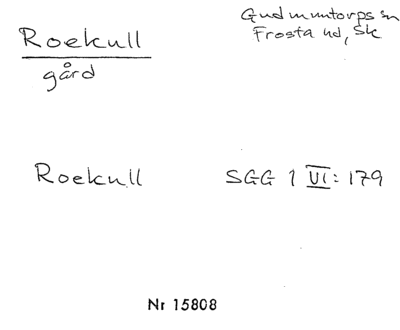 Roekull
gård
Gudmuntorps sn
Frosta hd, Sk
Roekull
SGG 1 VI: 179
Nr 15808